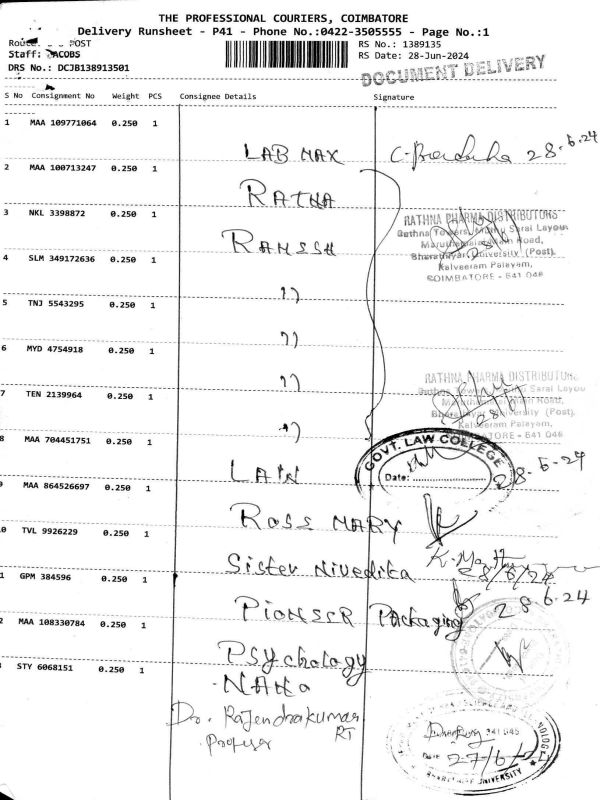 THE PROFESSIONAL COURIERS, COIMBATORE
Delivery Runsheet - P41 - Phone No.:0422-3505555 - Page No.:1
POST RS No.: 1389135
Staff: RS Date: 28-Jun-2024
DRS No.: DCJB138913501
DOCUMENT DELIVERY
S No Consignment No Weight PCS Consignee Details Signature
1 MAA 109771064 0.250 1
LAB MAX 28-6-24
2 MAA 100713247 0.250 1
RATHA
3 NKL 3398872 0.250 1
RATHNA PHARMA DISTRIBUTORS
Rathna Towers, Sarai Layout
Main Road,
Bharathiyar University (Post),
Kalveeram Palayam,
COIMBATORE - 641 046
RAMSSH
4 SLM 349172636 0.250 1
")
5 TNJ 5543295 0.250 1
")
6 MYD 4754918 0.250 1
")
RATHNA PHARMA DISTRIBUTORS
Main Road,
University (Post),
Kalveeram Palayam,
COIMBATORE - 641 046
7 TEN 2139964 0.250 1
")
8 MAA 704451751 0.250 1
GOVT. LAW COLLEGE
Date:
28-6-24
LAIN
9 MAA 864526697 0.250 1
ROSS MARY
0 TVL 9926229 0.250 1
Sister Nivedika
28/6/24
1 GPM 384596 0.250 1
PIONSER Packaging 28 6-24
2 MAA 108330784 0.250 1
PSYchology
STY 6068151 0.250 1
NAKA
Dr. Rajendrakumar
RT
Profesar
641 046
Date
27/6/24
UNIVERSITY